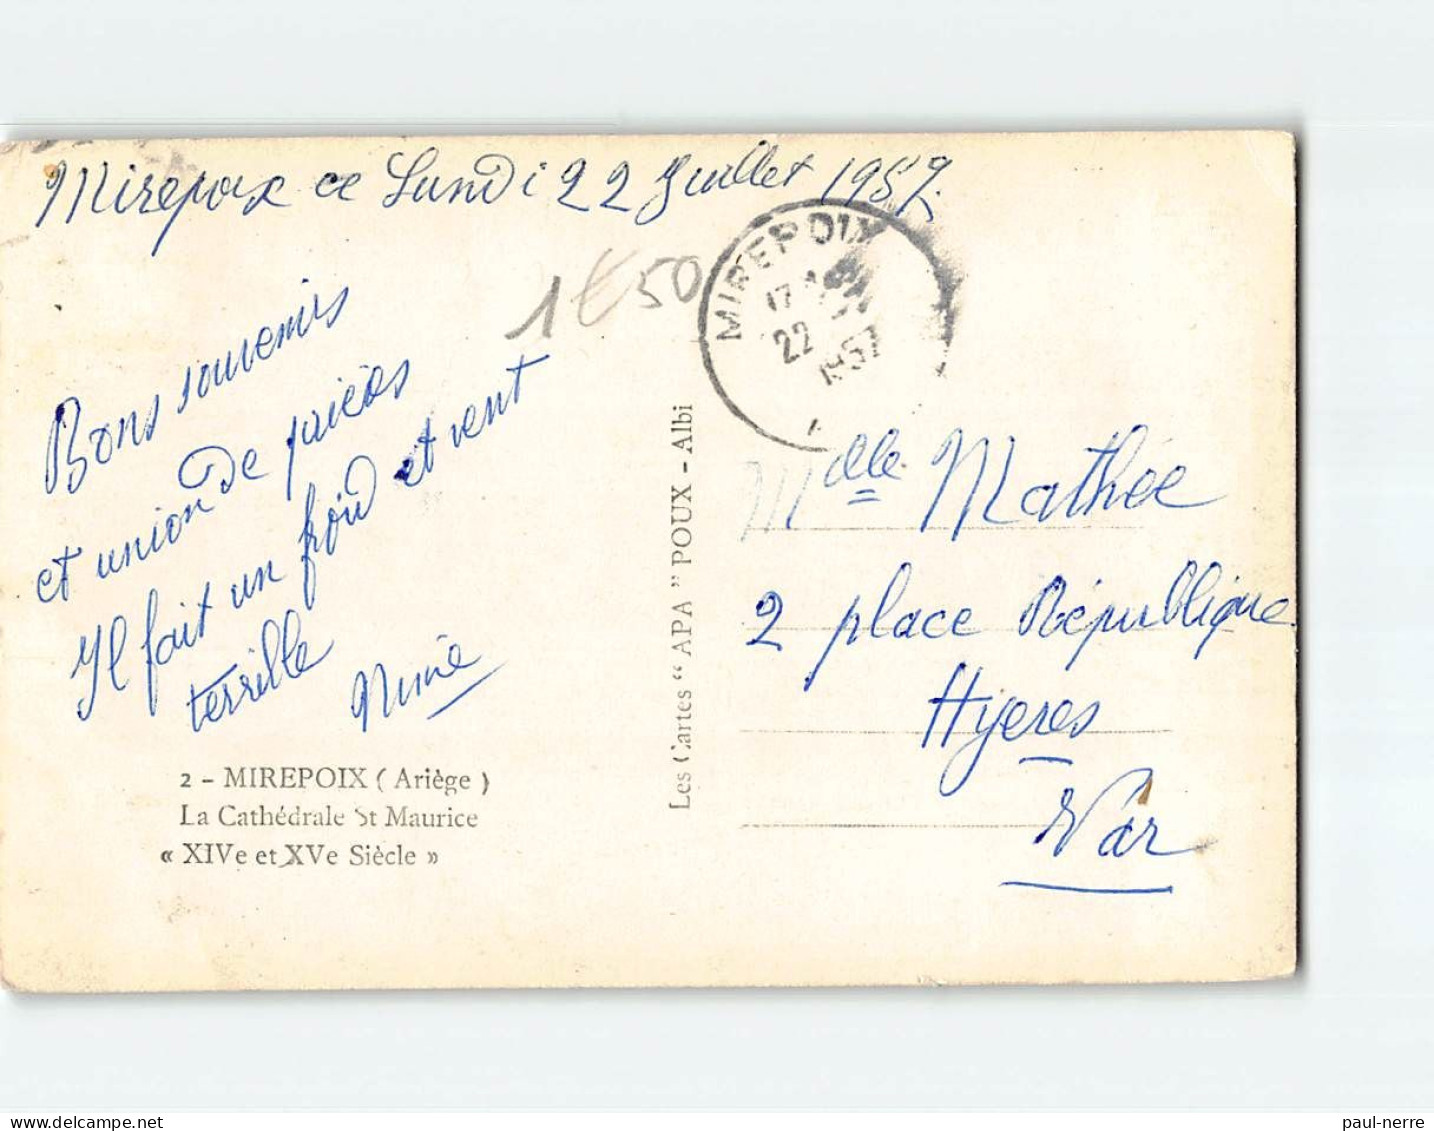 Mirepoix ce Lundi 22 Juillet 1957
1€50
MIREPOIX
17
22
1957
Bons souvenirs
et union de prières
Il fait un froid et vent
terrible
Mimie
2 - MIREPOIX ( Ariège )
La Cathédrale St Maurice
« XIVe et XVe Siècle »
Les Cartes “ APA ” POUX - Albi
Mdelle Mathée
2 place République
Hyeres
Var
delcampe.net
paul-nerre